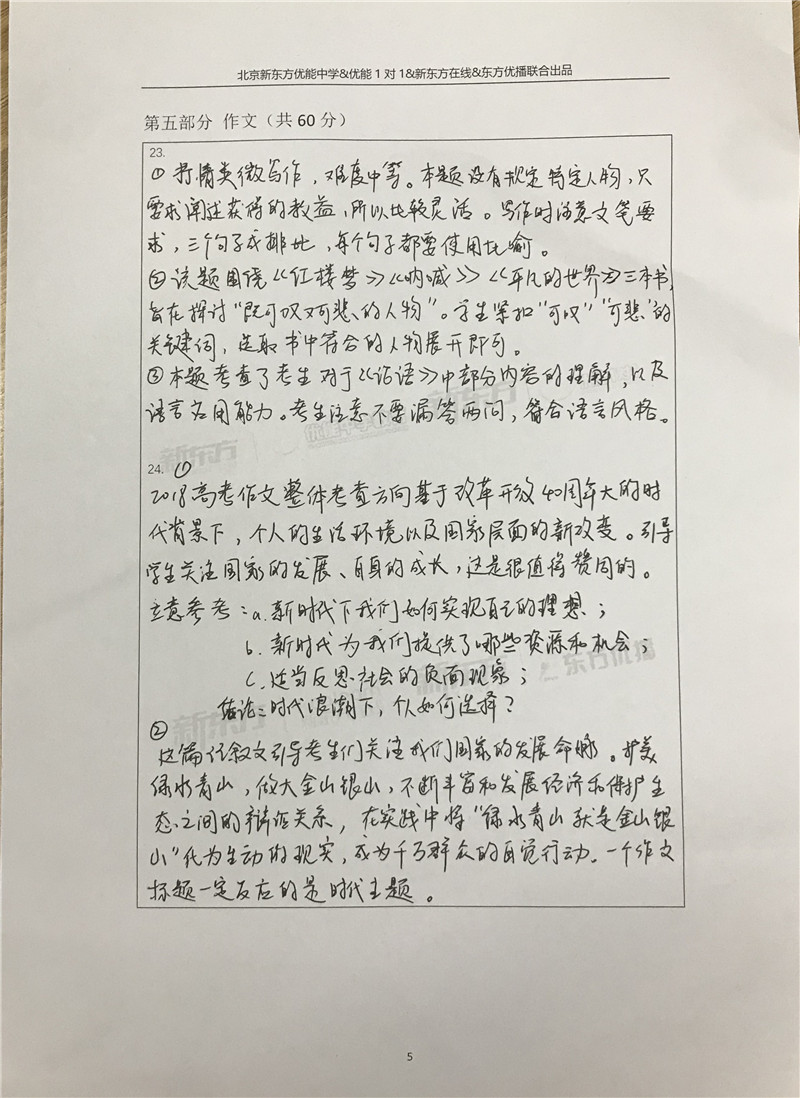 北京新东方优能中学&优能1对1&新东方在线&东方优播联合出品
第五部分 作文（共60分）
23.
①抒情类微写作，难度中等。本题没有规定特定人物，只
要求阐述获得的教益，所以比较灵活。写作时注意文笔要
求，三个句子成排比，每个句子都要使用比喻。
②该题围绕《红楼梦》《呐喊》《平凡的世界》三本书，
旨在探讨“既可叹又可悲的人物”。学生紧扣“可叹”“可悲”的
关键词，选取书中符合的人物展开即可。
③本题考查了考生对于《论语》中部分内容的理解，以及
语言应用能力。考生注意不要漏答两问，符合语言风格。
新东方
24. ①
2018高考作文整体考查方向基于改革开放40周年大的时
代背景下，个人的生活环境以及国家层面的新改变。引导
学生关注国家的发展、自身的成长，这是很值得赞同的。
立意参考：a.新时代下我们如何实现自己的理想；
b.新时代为我们提供了哪些资源和机会；
c.适当反思社会的负面现象；
东方优播
结论：时代浪潮下，个人如何选择？
新东方
②
这篇任叙文引导考生们关注我们国家的发展命脉。护美
绿水青山，做大金山银山，不断丰富和发展经济和保护生
态之间的辩证关系，在实践中将“绿水青山就是金山银
山”化为生动的现实，成为千万群众的自觉行动。一个作文
标题一定反应的是时代主题。
5